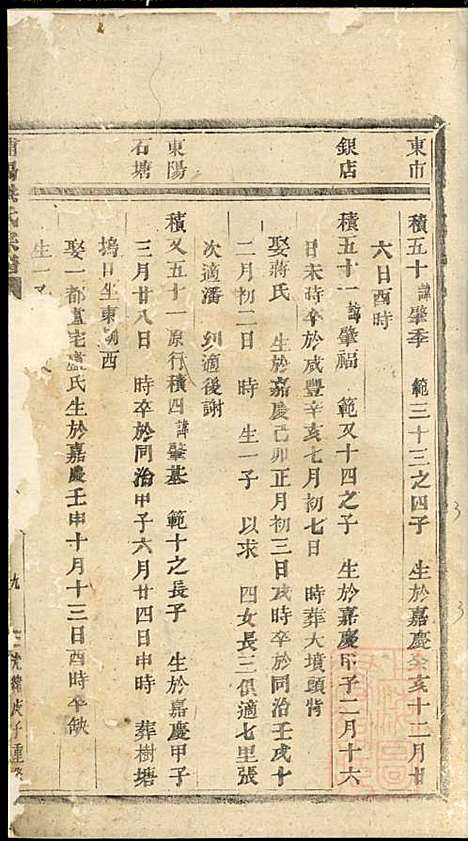 東市
積五十 諱肇季 範三十三之四子 生於嘉慶癸亥十二月廿
六日酉時
銀店
積五十一 諱肇福 範又十四之子 生於嘉慶甲子二月十六
日未時卒於咸豐辛亥七月初七日 時葬大墳頭背
娶蔣氏 生於嘉慶己卯正月初三日戌時卒於同治壬戌十
二月初二日 時 生一子 以求 四女長三俱適七里張
次適潘 適後謝
東陽
石塘
積又五十一 原行積四 諱肇基 範十之長子 生於嘉慶甲子
三月廿八日 時卒於同治甲子六月廿四日申時 葬樹塘
塢口坐東朝西
娶一都盧宅盧氏生於嘉慶壬申十月十三日酉時卒缺
生一子
氏宗譜
九
光緒庚子重